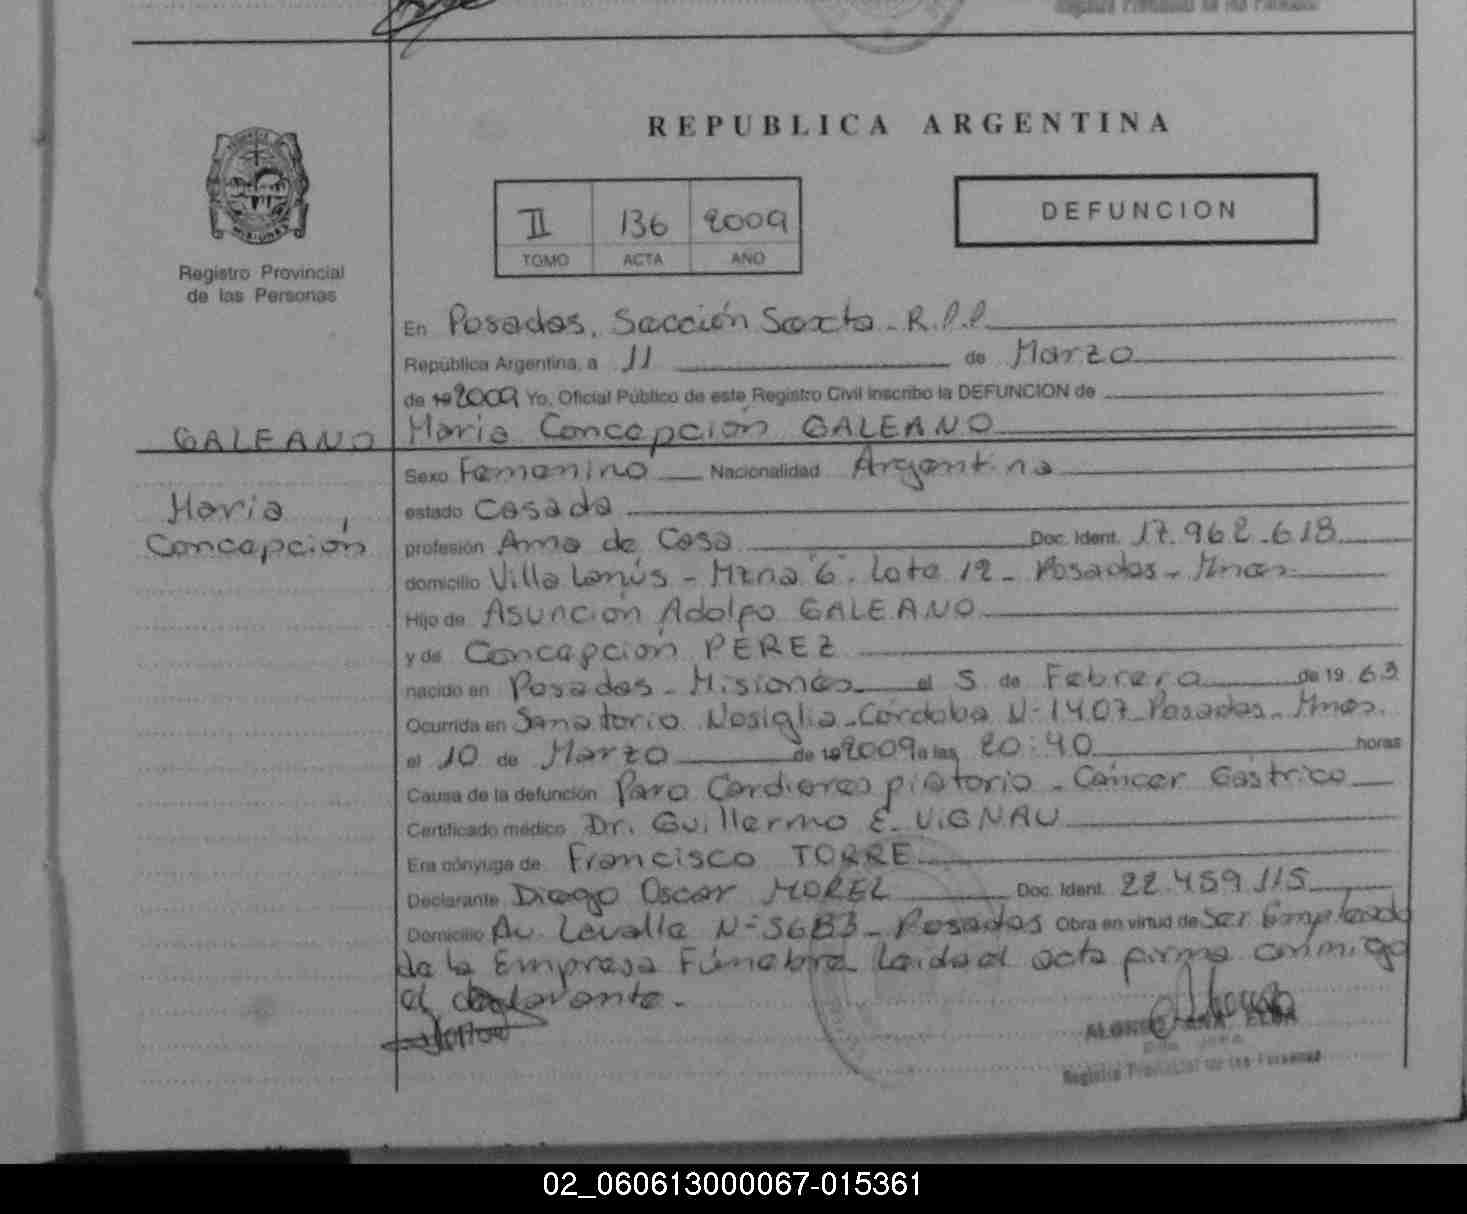 REPUBLICA ARGENTINA
II 136 2009
TOMO ACTA AÑO
DEFUNCION
MISIONES
Registro Provincial
de las Personas
En Posadas, Sección Sexta - R.P.P.
República Argentina, a 11 de Marzo
de 19 2009 Yo, Oficial Público de este Registro Civil inscribo la DEFUNCION de
GALEANO
Maria Concepción GALEANO
Maria
Concepción
Sexo Femenino Nacionalidad Argentina
estado Casada
profesión Ama de Casa Doc. Ident. 17.962.618
domicilio Villa Lanús - Mzna "6". Lote 12 - Posadas - Mnes
Hijo de Asunción Adolfo GALEANO
y de Concepción PÉREZ
nacido en Posadas - Misiones el 5 de Febrero de 19 63
Ocurrida en Sanatorio Nosiglia - Córdoba N- 1407 - Posadas - Mnes.
el 10 de Marzo de 19 2009 a las 20:40 horas
Causa de la defunción Paro Cardiorespiratorio - Cáncer Gástrico
Certificado médico Dr. Guillermo E. ViGNAU
Era cónyuge de Francisco TORRE
Declarante Diego Oscar MOREL Doc. Ident. 22.459.115
Domicilio Av. Lavalle N- 5683 - Posadas Obra en virtud de Ser Empleado
de la Empresa Fúnebre Leida el acta firma conmigo
el declarante.-
ALONSO ANA ELBA
Registro Provincial de las Personas
02_060613000067-015361